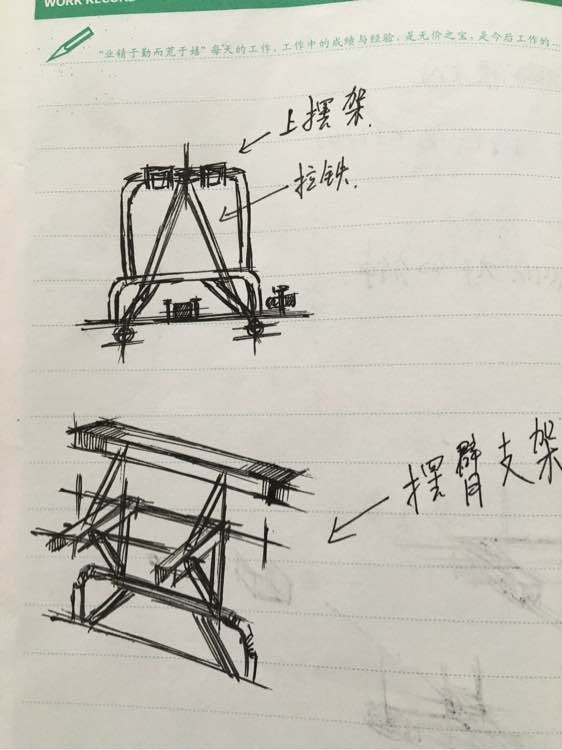 WORK RECORD
"业精于勤而荒于嬉"每天的工作，工作中的成绩与经验，是无价之宝，是今后工作的
上摆架.
拉铁.
摆臂支架